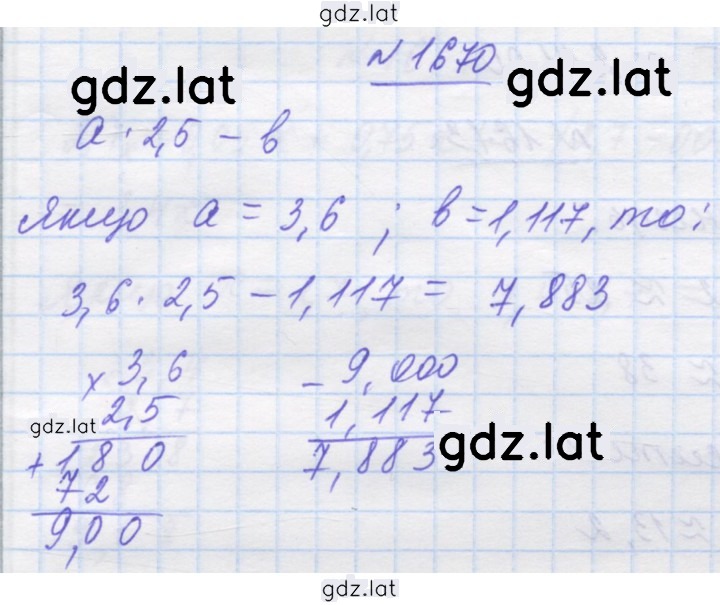 gdz.lat
№ 1670
gdz.lat gdz.lat
a · 2,5 – b
якщо a = 3,6 ; b = 1,117, то:
3,6 · 2,5 – 1,117 = 7,883
× 3,6 – 9,000
2,5 1,117
gdz.lat gdz.lat
+ 180 7,883
72
9,00
gdz.lat